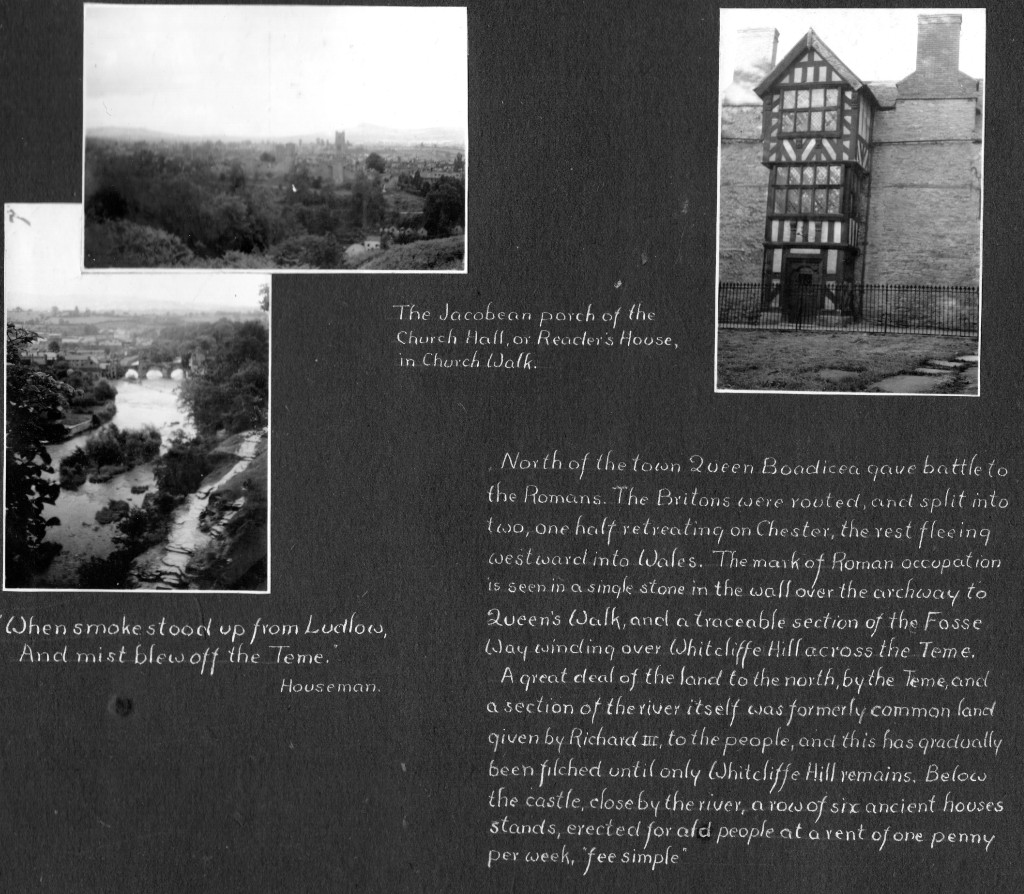 The Jacobean porch of the
Church Hall, or Reader's House,
in Church Walk.
"When smoke stood up from Ludlow,
And mist blew off the Teme."
Houseman.
North of the town Queen Boadicea gave battle to
the Romans. The Britons were routed, and split into
two, one half retreating on Chester, the rest fleeing
westward into Wales. The mark of Roman occupation
is seen in a single stone in the wall over the archway to
Queen's Walk, and a traceable section of the Fosse
Way winding over Whitcliffe Hill across the Teme.
A great deal of the land to the north, by the Teme, and
a section of the river itself was formerly common land
given by Richard III, to the people, and this has gradually
been filched until only Whitcliffe Hill remains. Below
the castle, close by the river, a row of six ancient houses
stands, erected for old people at a rent of one penny
per week, "fee simple"